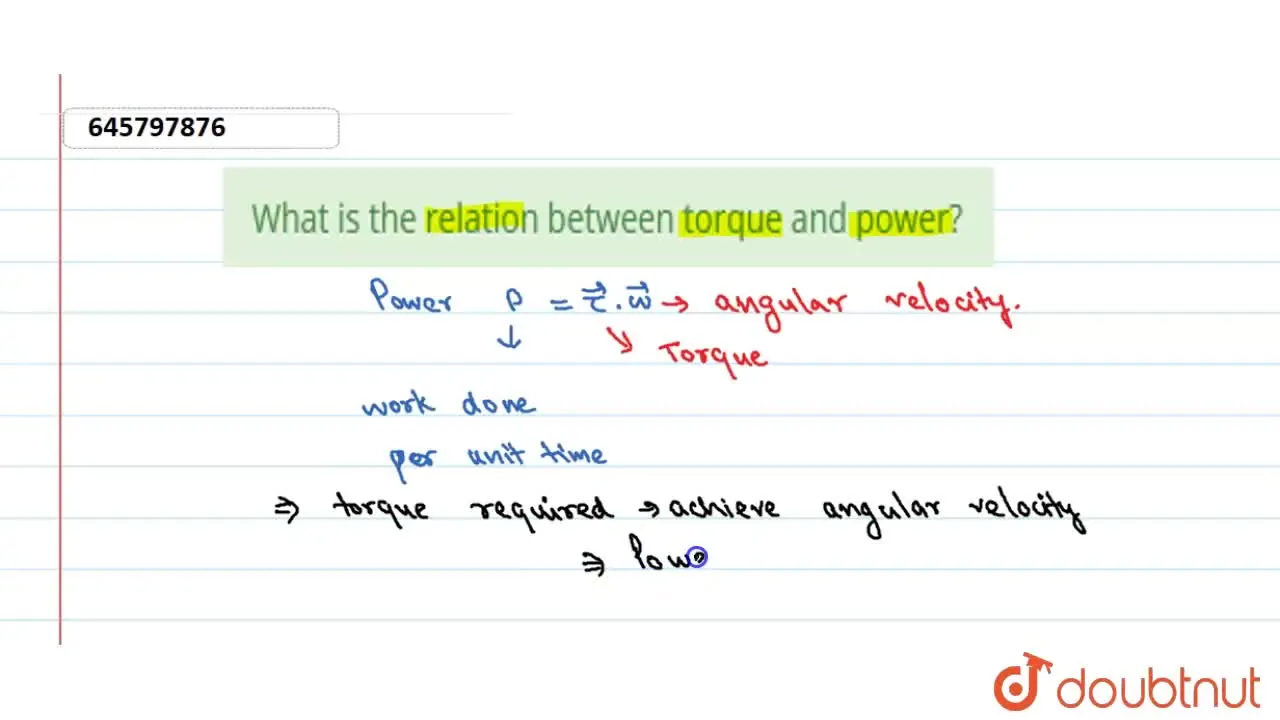 645797876
What is the relation between torque and power?
Power P = τ⃗ . ω⃗ → angular velocity.
↓ ↘ Torque
work done
per unit time
⇒ torque required → achieve angular velocity
⇒ Pow
doubtnut